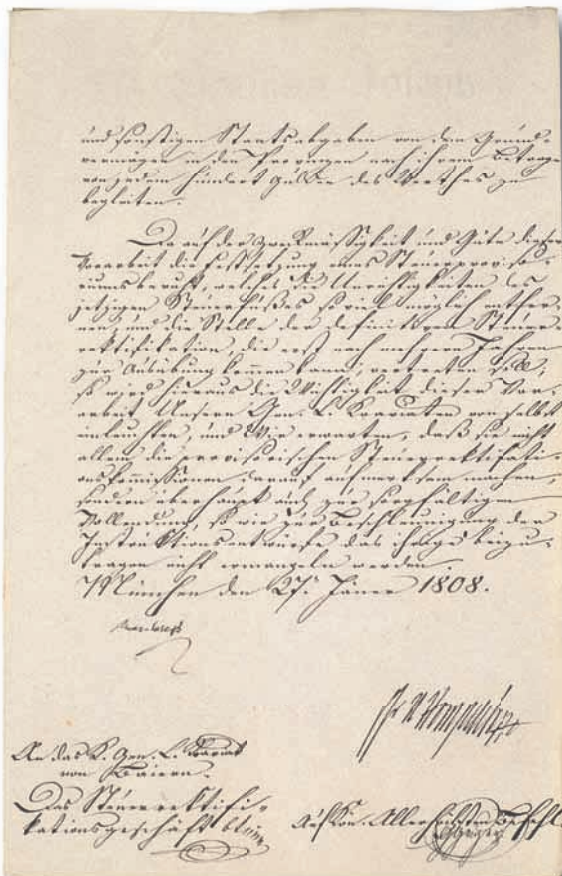 und sonstigen Staatsabgaben von dem Grund-
vermögen in den Provinzen nach ihrem Betrage
von jedem hundert Gulden des Werthes zu
begleiten.
Da auf der Zweckmässigkeit und Güte dieser
Vorarbeit die Festsetzung eines Steuerproviso-
riums beruht, welches die Unrichtigkeiten des
jetzigen Steuerfußes so viel möglich entfer-
nen, und die Stelle der definitiven Steuer-
rektifikation, die erst nach mehrern Jahren
zur Ausübung kommen kann, vertretten soll,
so wird hieraus die Wichtigkeit dieser Vor-
arbeit Unsern Gen. L. Kommissariaten von selbst
einleuchten, und Wir erwarten, daß sie nicht
allein die provisorischen Steuerrektifikati-
onskommissionen darauf aufmerksam machen,
sondern überhaupt auch zur sorgfältigen
Vollendung, so wie zur Beschleunigung der
Instruktionsentwürfe das ihrige beizu-
tragen nicht ermangeln werden.
München den 27. Jäner 1808.
Max Joseph
An das K. Gen. L.
von Baiern.
Das Steuerrektifi-
kationsgeschäft btr
Auf Kön. Allerhöchsten Befehl